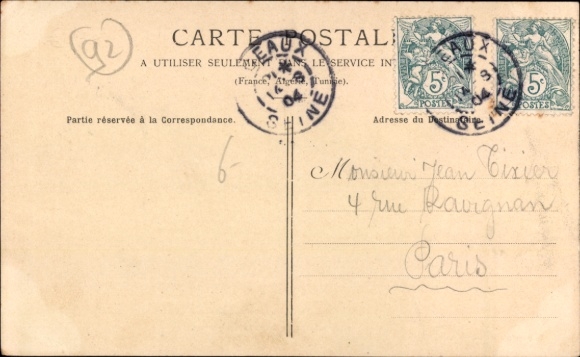 92
CARTE POSTAL
A UTILISER SEULEMENT DANS LE SERVICE INT
(France, Algérie, Tunisie).
SCEAUX
14 8
04
SEINE
SCEAUX
14 8
04
SEINE
5c
POSTES
5c
POSTES
Partie réservée à la Correspondance.
Adresse du Destinataire.
6-
Monsieur Jean Tixier
4 rue Ravignan
Paris